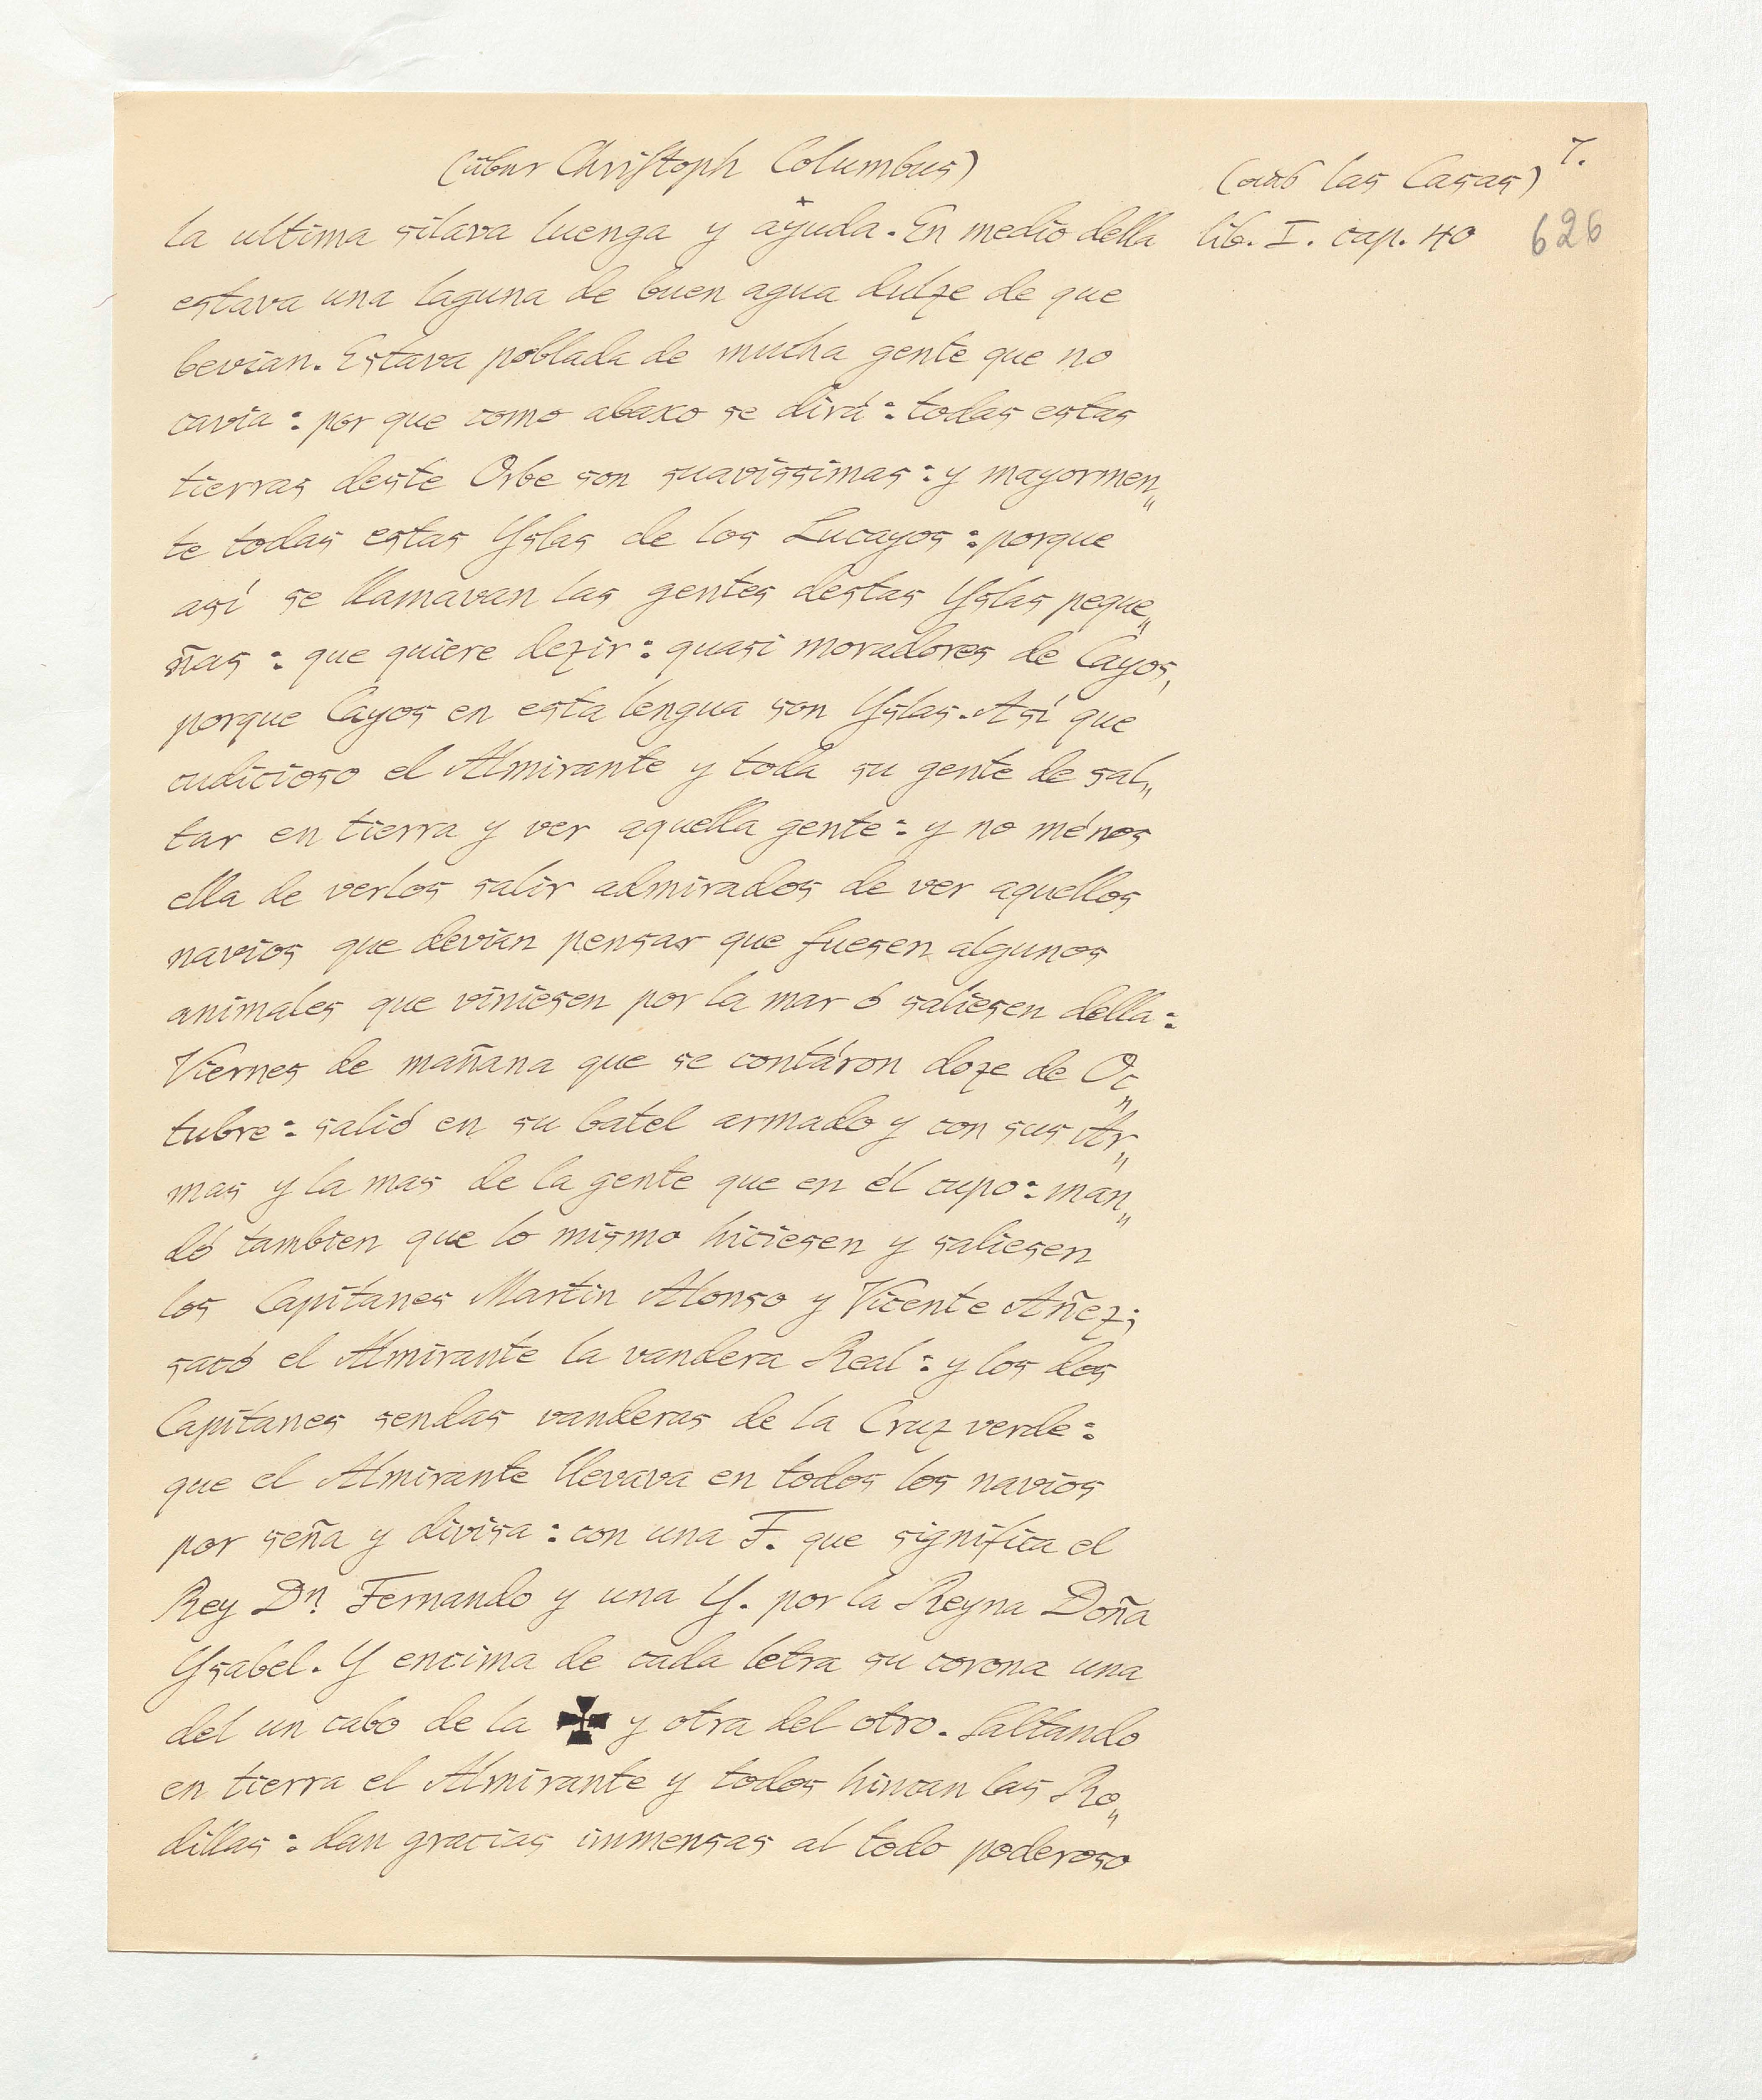 (über Christoph Columbus)
(aus las Casas) 7.
la ultima silava luenga y ayuda. En medio della lib. I. cap. 40 626
estava una laguna de buen agua dulze de que
bevian. Estava poblada de mucha gente que no
cavia : por que como abaxo se dirá : todas estas
tierras deste Orbe son suavissimas : y mayormen„
te todas estas Yslas de los Lucayos : porque
asi se llamavan las gentes destas Yslas peque„
ñas : que quiere dezir : quasi moradores de Cayos,
porque Cayos en esta lengua son Yslas. Asi que
cudicioso el Almirante y toda su gente de sal„
tar en tierra y ver aquella gente : y no ménos
ella de verlos salir admirados de ver aquellos
navios que devian pensar que fuesen algunos
animales que viniesen por la mar ó saliesen della :
Viernes de mañana que se contáron doze de Oc„
tubre : salió en su batel armado y con sus Ar„
mas y la mas de la gente que en él cupo : man„
dó tambien que lo mismo hiciesen y saliesen
los Capitanes Martin Alonso y Vicente Añez ;
sacó el Almirante la vandera Real : y los dos
Capitanes sendas vanderas de la Cruz verde :
que el Almirante llevava en todos los navios
por seña y divisa : con una F. que significa el
Rey Dn. Fernando y una Y. por la Reyna Doña
Ysabel. Y encima de cada letra su corona una
del un cabo de la ✠ y otra del otro. Saltando
en tierra el Almirante y todos hincan las Ro„
dillas : dan gracias immensas al todo poderoso